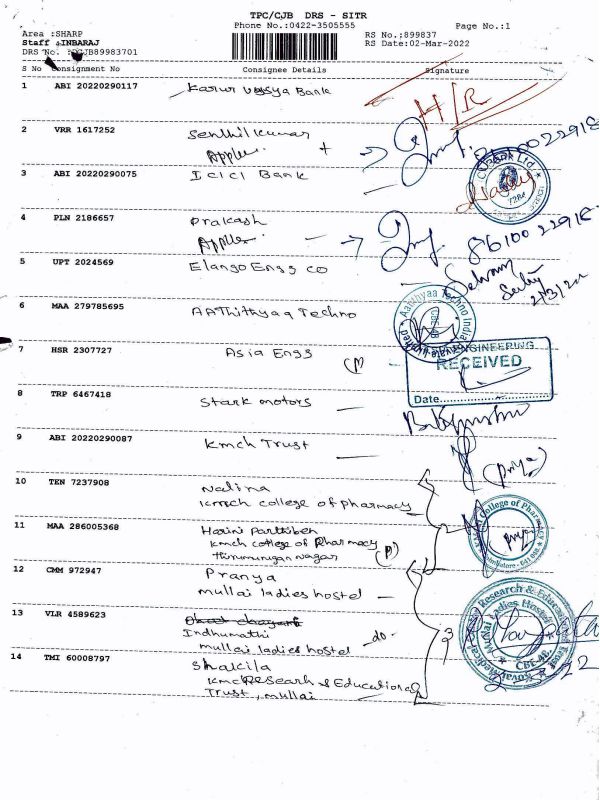 TPC/CJB DRS - SITR
Phone No.:0422-3505555
Page No.:1
Area :SHARP
Staff :INBARAJ
DRS No. :CJB89983701
RS No.:899837
RS Date:02-Mar-2022
S No Consignment No Consignee Details Signature
1 ABI 20220290117 Karur Vysya Bank
H/R
2 VRR 1617252 Senthil kumar
3 ABI 20220290075 ICICI Bank
4 PLN 2186657 Prakash
8610022918
5 UPT 2024569 Elango Engg co
Selvam
2/3/22
6 MAA 279785695 AAThithyaa Techno
Aathithyaa Techno India
7 HSR 2307727 Asia Engg (P)
ENGINEERING
RECEIVED
Date
8 TRP 6467418 Stark motors
9 ABI 20220290087 Kmch Trust
(priya)
10 TEN 7237908 Nalina
kmch college of pharmacy
College of Pharmacy
11 MAA 286005368 Harini Parthiben
kmch college of Pharmacy
thirumurugan nagar (P)
12 CMM 972947 Pranya
mullai ladies hostel
13 VLR 4589623
Indhumathi
mullai ladies hostel -do-
Research & Educational
Mullai Ladies Hostel
CBE-48.
14 TMI 60008797 Shakila
kmch Research & Educational
Trust, mullai